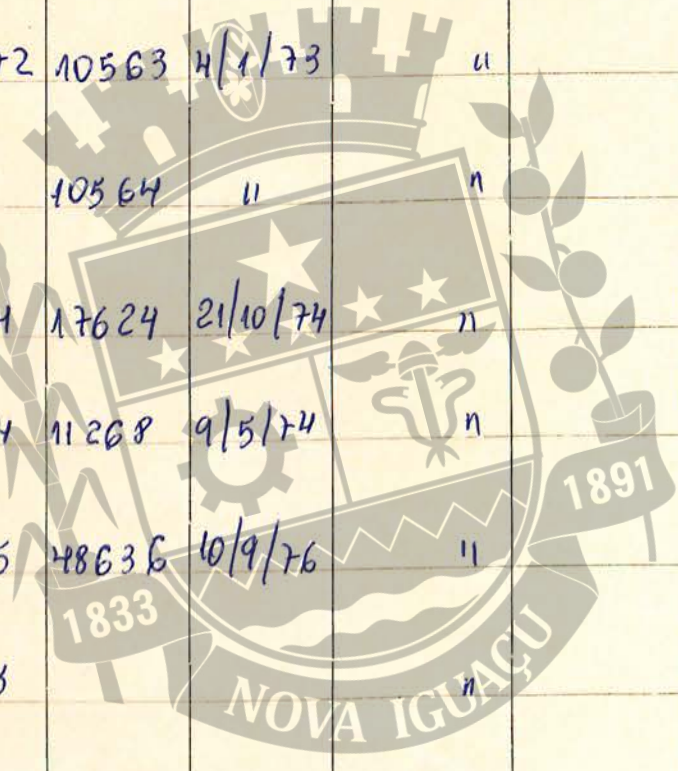 72 10563 4/1/73 "
10564 " "
17624 21/10/74 "
11268 9/5/74 "
48636 10/9/76 "
"
1833
1891
NOVA IGUAÇU